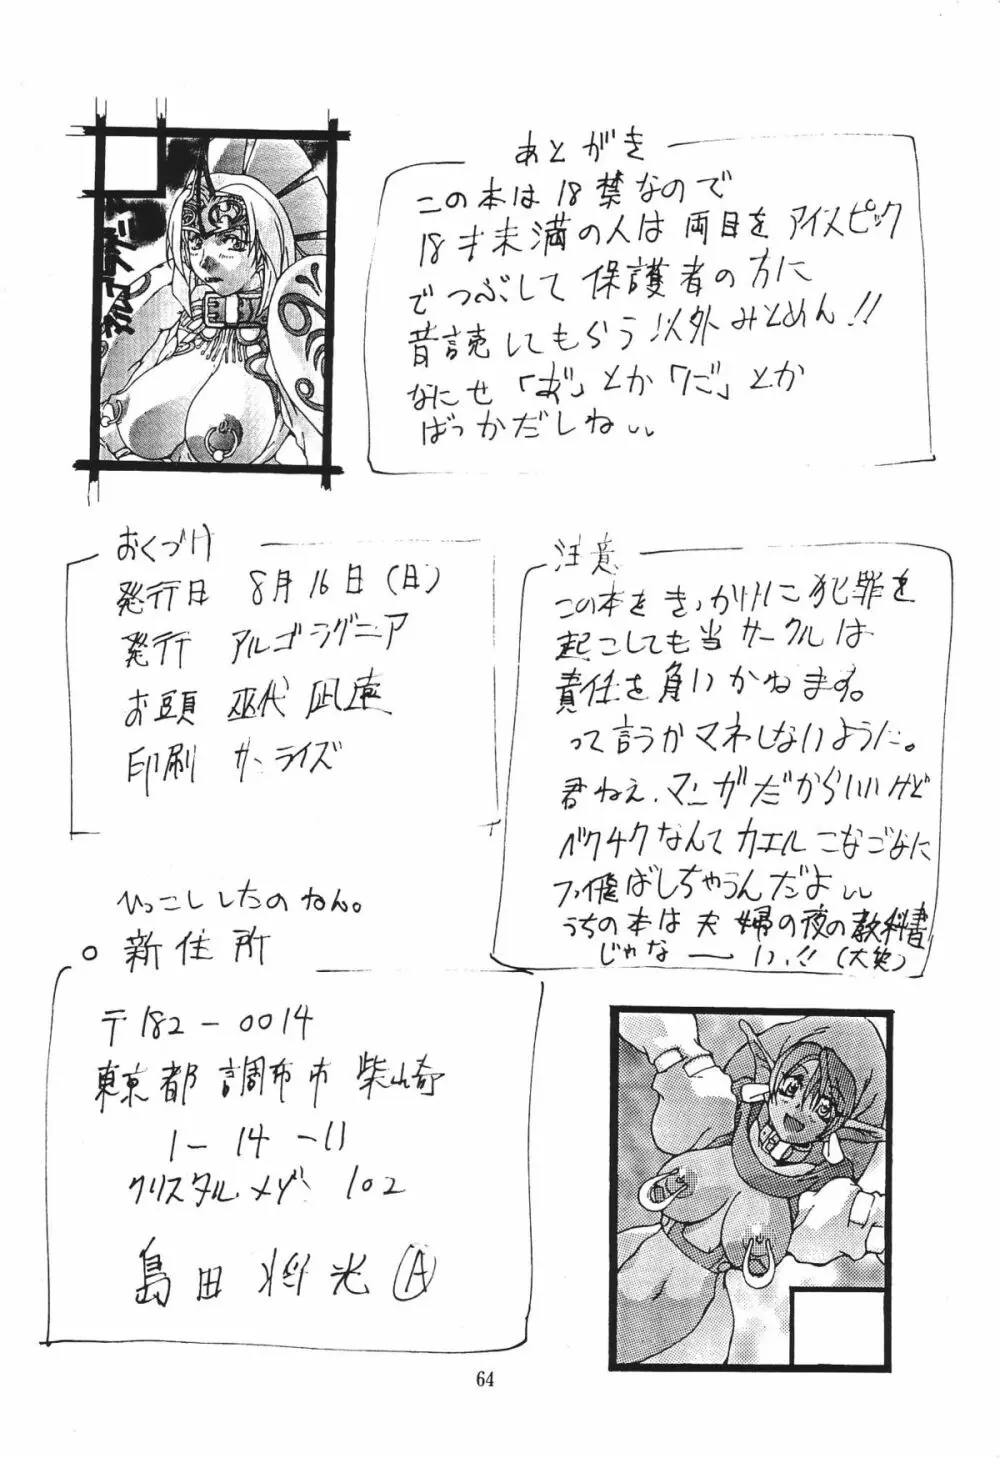 あとがき
この本は18禁なので
18才未満の人は両目をアイスピック
でつぶして保護者の方に
音読してもらう以外みとめん!!
なにせ「お゛」とか「ご」とか
ばっかだしねい
おくづけ
発行日 8月16日(日)
発行 アルゴラグニア
お頭 巫代凪遠
印刷 サンライズ
注意
この本をきっかけに犯罪を
起こしても当サークルは
責任を負いかねます。
って言うかマネしないように。
君ねえ、マンガだからいいけど
ベクチクなんてカエルこなごなに
フッ飛ばしちゃうんだよい
うちの本は夫婦の夜の教科書
じゃなーい!!(大笑)
ひっこししたのねん。
○新住所
〒182-0014
東京都調布市柴崎
1-14-11
クリスタルメゾン 102
島田将光(A)
64